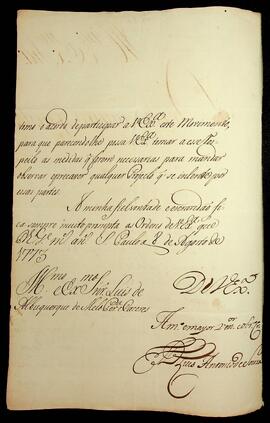 timo o acordo departicipar a V.Ex.ª este Movimento,
para que parecendolhe possa V.Ex.ª tomar a esse res-
peito as medidas q̃ forem necessarias para mandar
observar qualquer Projecto q̃ se intente por
essas partes.
A minha fiel vontade e fi-
ca sempre muito prompta as Ordens de V.Ex.ª que
D.s g.e m.s an.s S. Paulo a 8 de Agosto de
1775
Ill.mo e Ex.mo Snr. Luis de
Albuquerque de Mello Caceres
De V.Ex.ª
Am.º mayor
Luis Antonio de Souza